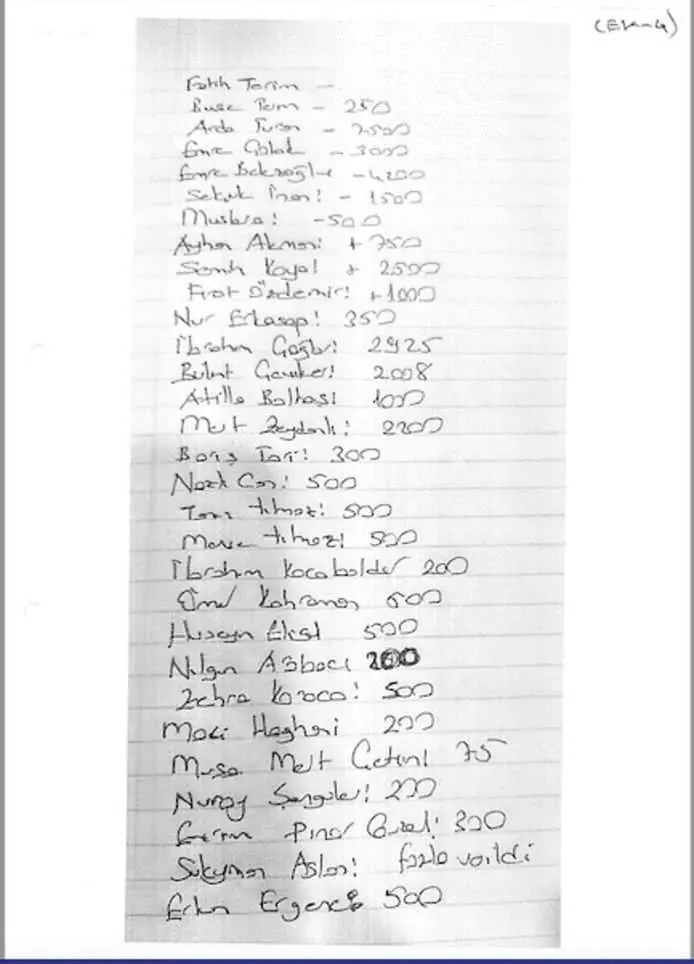 (Ek-4)
Fatih Terim -
Buse Terim - 250
Arda Turan - 7500
Emre Çolak - 3000
Emre Belezoğlu - 4200
Selçuk İnan: - 1500
Muslera: - 500
Ayhan Akman: + 750
Semih Kaya: + 2500
Fırat Özdemir: + 1000
Nur Erkasap: 350
İbrahim 2925
Bülent Çeviker: 2008
Atilla Baltaş: 1000
Mert Zeydanlı: 2200
Barış Tari: 300
Nazlı Can: 500
Tanı Yılmaz: 500
Merve Yılmaz: 500
İbrahim Kocabaldır 200
Ömer Kahraman 500
Hüseyin Eksi 500
Nilgün 200
Zehra Karaca: 500
Haghani 200
Musa Mert Çetin: 75
Nuray Şengüler: 200
Pınar Güzel: 300
Süleyman Aslan: fazla verildi
Erkan Ergenç 500